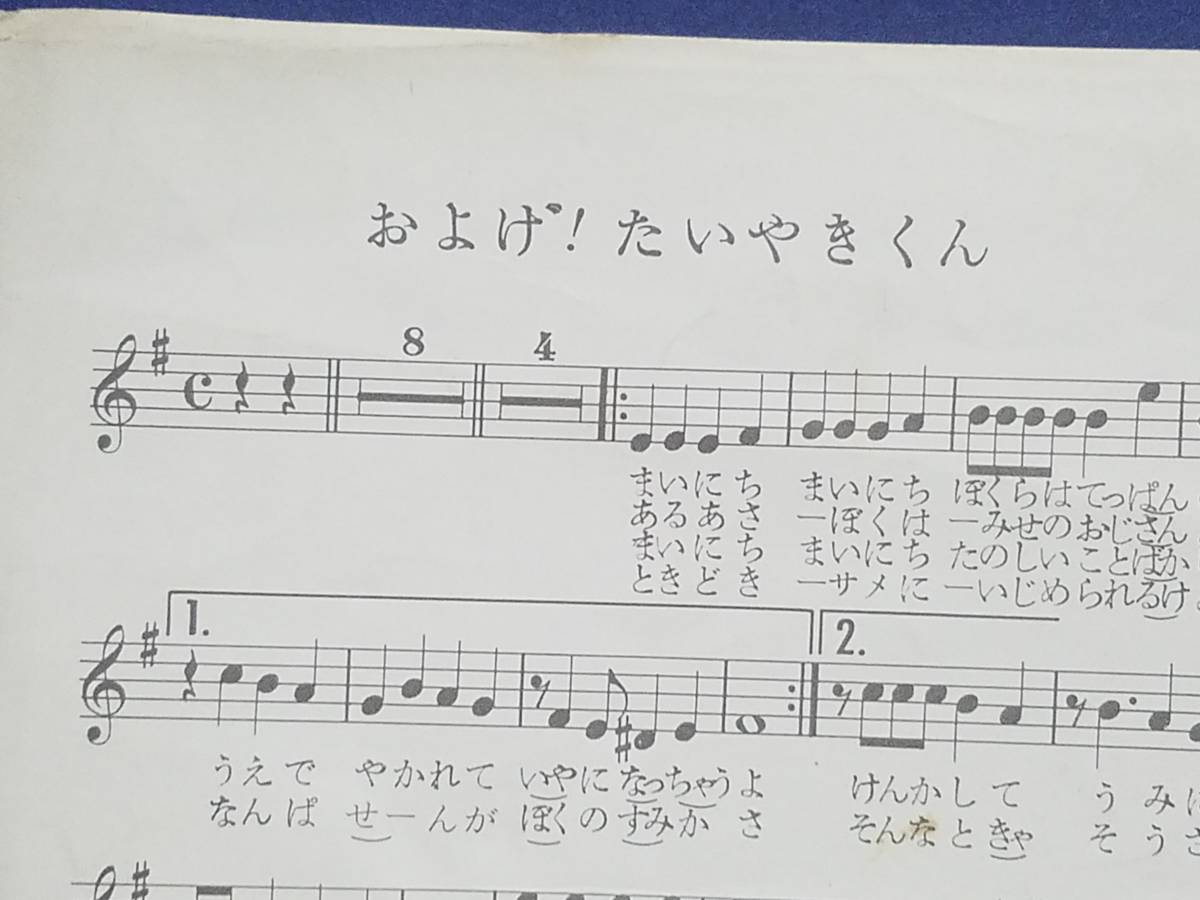 およげ！たいやきくん
8 4
まいにち まいにち ぼくらはてっぱん
あるあさ ーぼくは ーみせのおじさん
まいにち まいにち たのしいことばか
ときどき ーサメに ーいじめられるけ
1. 2.
うえで やかれて いやになっちゃうよ けんかして うみに
なんぱ せーんが ぼくのすみか さ そんなときゃ そうさ